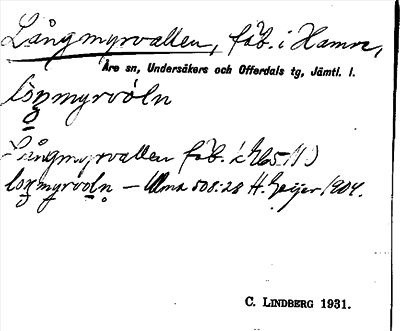 Långmyrvallen, fäb. i Hamre,
Åre sn, Undersåkers och Offerdals tg, Jämtl. l.
lòŋmyrvóln
Långmyrvallen fäb.
loŋmyrvoln – Ulma 508:28 H. Geijer 1904.
C. LINDBERG 1931.